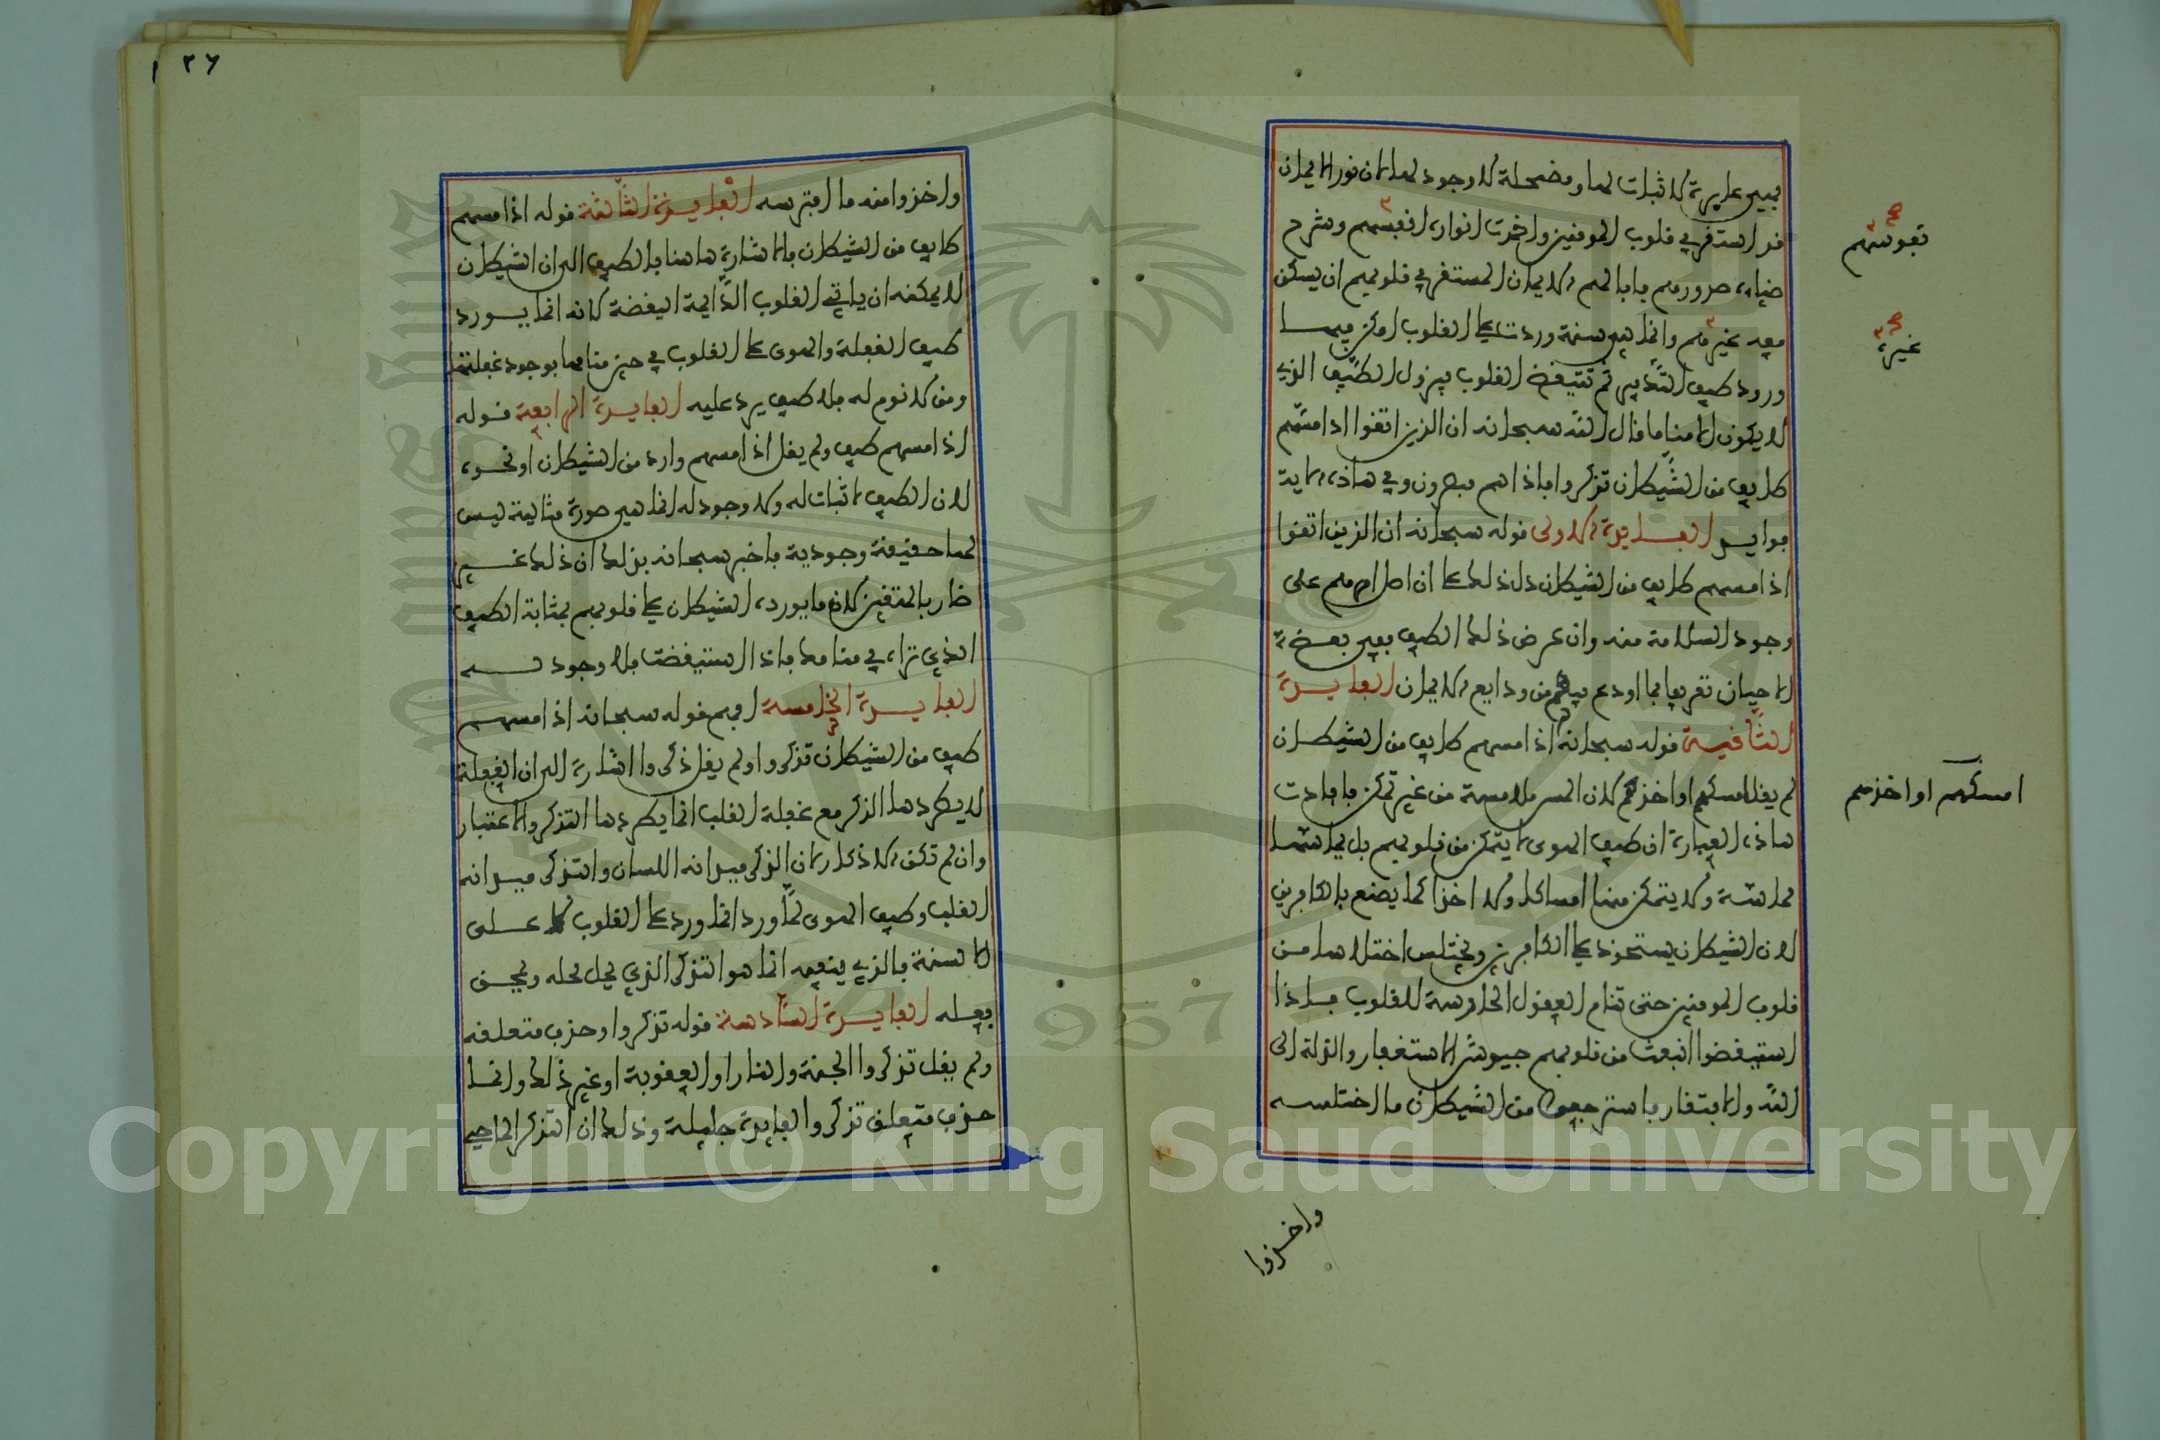 فهي عارية لا ثبات لها ومضمحلة لا وجود لها لان نور الايمان
قد استقر في قلوب المومنين واخمدت انواره انفسهم وشرح
ضياءه صدورهم فابا لهم الايمان المستقر في قلوبهم ان يسكن
معه غيرهم وانما هي سنة وردت على القلوب امكن فيها
ورود طيف التدبير ثم تتيقظ القلوب فيزول الطيف الذي
لا يكون الا مناما قال الله سبحانه ان الذين اتقوا اذا مسهم
طايف من الشيطان تذكروا فاذا هم مبصرون وفي هاذه الاية
فوايد الفايدة الاولى قوله سبحانه ان الذين اتقوا
اذا مسهم طايف من الشيطان دل ذلك على ان اصل امرهم على
وجود السلامة منه وان عرض ذلك الطيف ففي بعض
الاحيان تعريفا بما اودع فيهم من ودايع الايمان الفايدة
الثانية قوله سبحانه اذا مسهم طايف من الشيطان
لم يقل امسكهم او اخذهم لان المس ملامسة من غير تمكن فافادت
هاذه العبارة ان طيف الهوى لا يتمكن من قلوبهم بل يماسها
مماسة ولا يتمكن منها امساكا ولا اخذا كما يصنع بالكافرين
لان الشيطان يستحوذ على الكافرين ويختلس اختلاسا من
قلوب المومنين حتى تنام العقول الحارسة للقلوب فاذا
استيقظوا انبعث من قلوبهم جيوش الاستغفار والذلة الى
الله والافتقار فاسترجعوا من الشيطان ما اختلسه
نفوسهم
صح
غيره
صح
امسكهم او اخذهم
واخذوا
٣٦
واخذوا منه ما افترسه الفايدة الثالثة قوله اذا مسهم
طايف من الشيطان فالاشارة هاهنا بالطيف الى ان الشيطان
لا يمكنه ان ياتي القلوب الدايمة اليقضة لانه انما يورد
طيف الغفلة والهوى على القلوب في حين منامها بوجود غفلتها
ومن لا نوم له فلا طيف يرد عليه الفايدة الرابعة قوله
اذا مسهم طيف ولم يقل اذا مسهم وارد من الشيطان او نحوه
لان الطيف لا ثبات له ولا وجود له انما هي صورة مثالية ليس
لها حقيقة وجودية فاخبر سبحانه بذلك ان ذلك غير
ضار بالمتقين لان ما يورده الشيطان على قلوبهم بمثابة الطيف
الذي تراه في منامك فاذا استيقضت فلا وجود له
الفايدة الخامسة افهم قوله سبحانه اذا مسهم
طيف من الشيطان تذكروا ولم يقل ذكروا اشارة الى ان الغفلة
لا يطردها الذكر مع غفلة القلب انما يطردها التذكر والاعتبار
وان لم تكن الاذكار لان الذكر ميدانه اللسان والتذكر ميدانه
القلب وطيف الهوى لما ورد انما ورد على القلوب لا على
الالسنة فالذي ينفيه انما هو التذكر الذي يحل محله ويمحق
فعله الفايدة السادسة قوله تذكروا وحذف متعلقه
ولم يقل تذكروا الجنة والنار او العقوبة او غير ذلك وانما
حذف متعلق تذكروا لفايدة جليلة وذلك ان التذكر الماحي
Copyright © King Saud University
1957